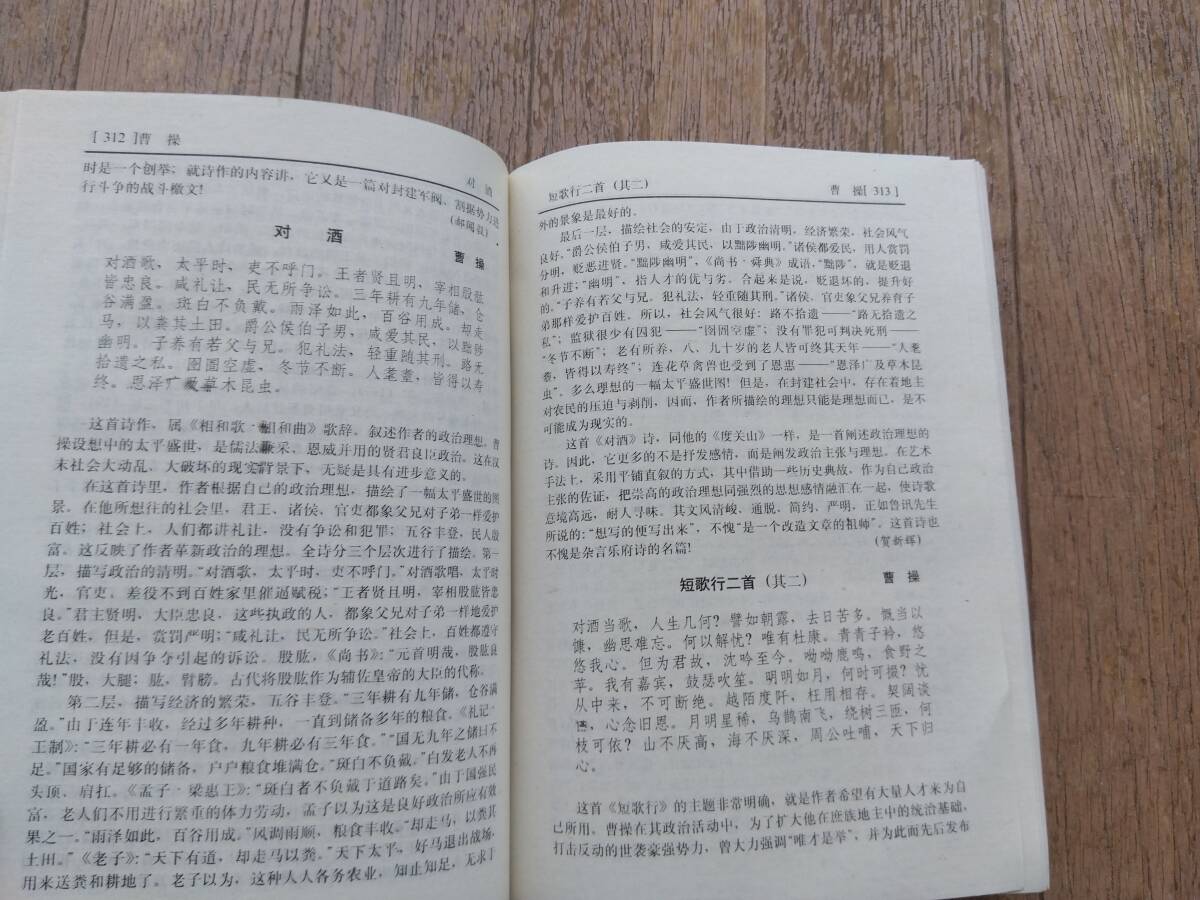 [ 312 ]曹 操
对 酒
时是一个创举；就诗作的内容讲，它又是一篇对封建军阀、割据势力进
行斗争的战斗檄文！
(郝闻叔)
对 酒
曹 操
对酒歌，太平时，吏不呼门。王者贤且明，宰相股肱
皆忠良。咸礼让，民无所争讼。三年耕有九年储，仓
谷满盈。斑白不负戴。雨泽如此，百谷用成。却走
马，以粪其土田。爵公侯伯子男，咸爱其民，以黜陟
幽明。子养有若父与兄。犯礼法，轻重随其刑。路无
拾遗之私。囹圄空虚，冬节不断。人耄耋，皆得以寿
终。恩泽广及草木昆虫。
这首诗作，属《相和歌·相和曲》歌辞。叙述作者的政治理想。曹
操设想中的太平盛世，是儒法兼采、恩威并用的贤君良臣政治。这在汉
末社会大动乱、大破坏的现实背景下，无疑是具有进步意义的。
在这首诗里，作者根据自己的政治理想，描绘了一幅太平盛世的图
景。在他所想往的社会里，君王、诸侯、官吏都象父兄对子弟一样爱护
百姓；社会上，人们都讲礼让，没有争讼和犯罪；五谷丰登，民人殷
富。这反映了作者革新政治的理想。全诗分三个层次进行了描绘。第一
层，描写政治的清明。“对酒歌，太平时，吏不呼门。”对酒歌唱，太平时
光，官吏。差役不到百姓家里催逼赋税；“王者贤且明，宰相股肱皆忠
良。”君主贤明，大臣忠良，这些执政的人，都象父兄对子弟一样地爱护
老百姓，但是，赏罚严明；“咸礼让，民无所争讼。”社会上，百姓都遵守
礼法，没有因争夺引起的诉讼。股肱，《尚书》：“元首明哉，股肱良
哉！”股，大腿；肱，臂膀。古代将股肱作为辅佐皇帝的大臣的代称。
第二层，描写经济的繁荣，五谷丰登。“三年耕有九年储，仓谷满
盈。”由于连年丰收，经过多年耕种，一直到储备多年的粮食。《礼记·
王制》：“三年耕必有一年食，九年耕必有三年食。”“国无九年之储曰不
足。”国家有足够的储备，户户粮食堆满仓。“斑白不负戴。”白发老人不再
头顶、肩扛。《孟子·梁惠王》：“斑白者不负戴于道路矣。”由于国强民
富，老人们不用进行繁重的体力劳动，孟子以为这是良好政治所应有效
果之一。“雨泽如此，百谷用成。”风调雨顺，粮食丰收。“却走马，以粪其
土田。”《老子》：“天下有道，却走马以粪。”天下太平，好马退出战场，
用来送粪和耕地了。老子以为，这种人人各务农业，知止知足，无求于
短歌行二首（其二）
曹 操[ 313 ]
外的景象是最好的。
最后一层，描绘社会的安定，由于政治清明，经济繁荣，社会风气
良好。“爵公侯伯子男，咸爱其民，以黜陟幽明。”诸侯都爱民，用人赏罚
分明，贬恶进贤。“黜陟幽明”，《尚书·舜典》成语，“黜陟”，就是贬退
和升进；“幽明”，指人才的优与劣。合起来是说，贬退坏的，提升好
的。“子养有若父与兄。犯礼法，轻重随其刑。”诸侯、官吏象父兄养育子
弟那样爱护百姓。所以，社会风气很好：路不拾遗——“路无拾遗之
私”；监狱很少有囚犯——“囹圄空虚”；没有罪犯可判决死刑——
“冬节不断”；老有所养，八、九十岁的老人皆可终其天年——“人耄
耋，皆得以寿终”；连花草禽兽也受到了恩惠——“恩泽广及草木昆
虫”。多么理想的一幅太平盛世图！但是，在封建社会中，存在着地主
对农民的压迫与剥削，因而，作者所描绘的理想只能是理想而已，是不
可能成为现实的。
这首《对酒》诗，同他的《度关山》一样，是一首阐述政治理想的
诗。因此，它更多的不是抒发感情，而是阐发政治主张与理想。在艺术
手法上，采用平铺直叙的方式，其中借助一些历史典故，作为自己政治
主张的佐证，把崇高的政治理想同强烈的思想感情融汇在一起，使诗歌
意境高远，耐人寻味。其文风清峻、通脱、简约、严明，正如鲁讯先生
所说的：“想写的便写出来”，不愧“是一个改造文章的祖师”。这首诗也
不愧是杂言乐府诗的名篇！
(贺新辉)
短歌行二首（其二）
曹 操
对酒当歌，人生几何？譬如朝露，去日苦多。慨当以
慷，幽思难忘。何以解忧？唯有杜康。青青子衿，悠
悠我心。但为君故，沈吟至今。呦呦鹿鸣，食野之
苹。我有嘉宾，鼓瑟吹笙。明明如月，何时可掇？忧
从中来，不可断绝。越陌度阡，枉用相存。契阔谈
，心念旧恩。月明星稀，乌鹊南飞，绕树三匝，何
枝可依？山不厌高，海不厌深，周公吐哺，天下归
心。
这首《短歌行》的主题非常明确，就是作者希望有大量人才来为自
己所用。曹操在其政治活动中，为了扩大他在庶族地主中的统治基础，
打击反动的世袭豪强势力，曾大力强调“唯才是举”，并为此而先后发布